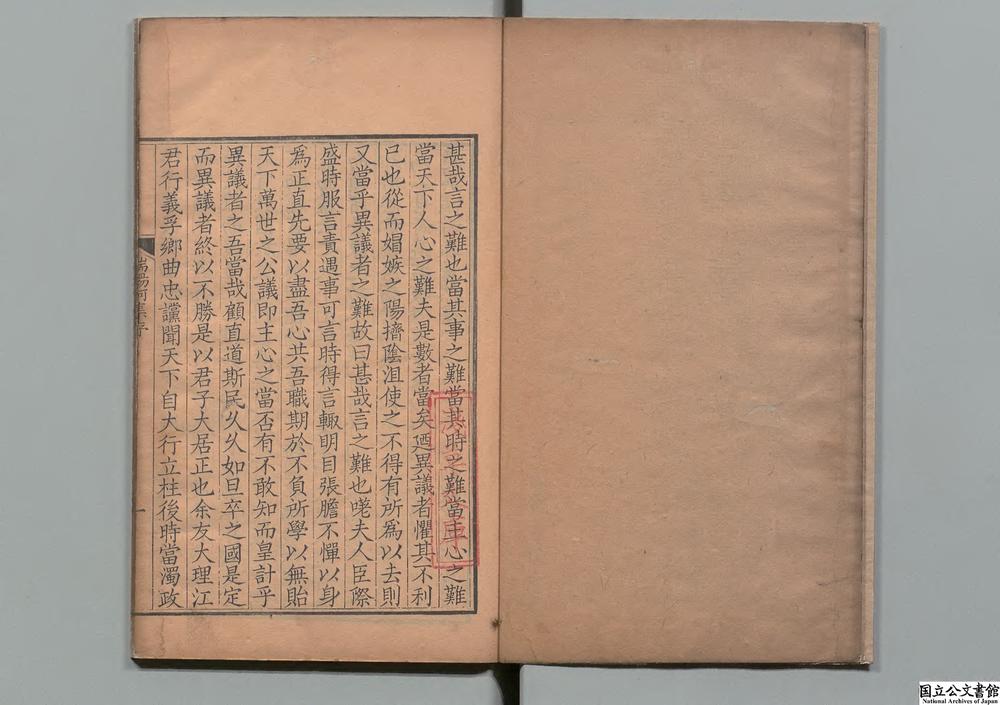 甚哉言之難也當其事之難當其時之難當主心之難
當天下人心之難夫是數者當矣廼異議者懼其不利
已也從而媢嫉之陽擠陰沮使之不得有所為以去則
又當乎異議者之難故曰甚哉言之難也嗟夫人臣際
盛時服言責遇事可言時得言輙明目張膽不憚以身
為正直先要以盡吾心共吾職期於不負所學以無貽
天下萬世之公議即主心之當否有不敢知而皇計乎
異議者之吾當哉顧直道斯民久久如旦卒之國是定
而異議者終以不勝是以君子大居正也余友大理江
君行義孚鄉曲忠讜聞天下自大行立柱後時當濁政
瑞陽阿集序
一
国立公文書館
National Archives of Japan